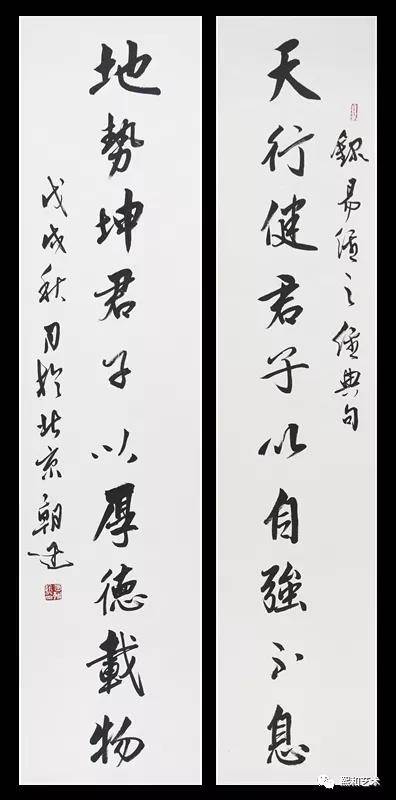 録易經之經典句
天行健君子以自強不息
地勢坤君子以厚德載物
戊戌秋月於北京朝迅
熙和艺术